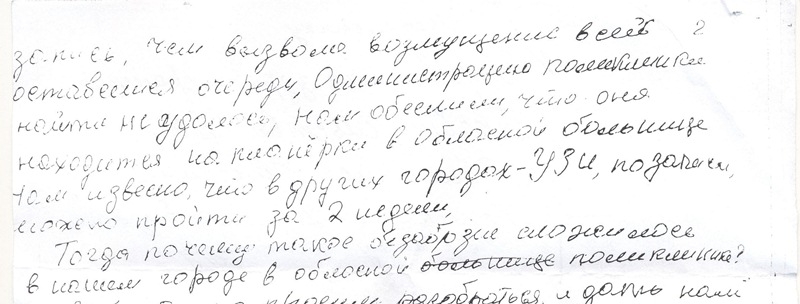 2
запись, чем вызвала возмущение всей
оставшейся очереди, Администрацию поликлиники
найти не удалось, нам обеснили, что она
находится на планёрки в обласной больнице
Нам извесно, что в других городах-УЗИ, по записи,
можно пройти за 2 недели,
Тогда почему такое безобразие сложилось
в нашем городе в обласной больнице поликлинике?
просим разобраться и дать нам